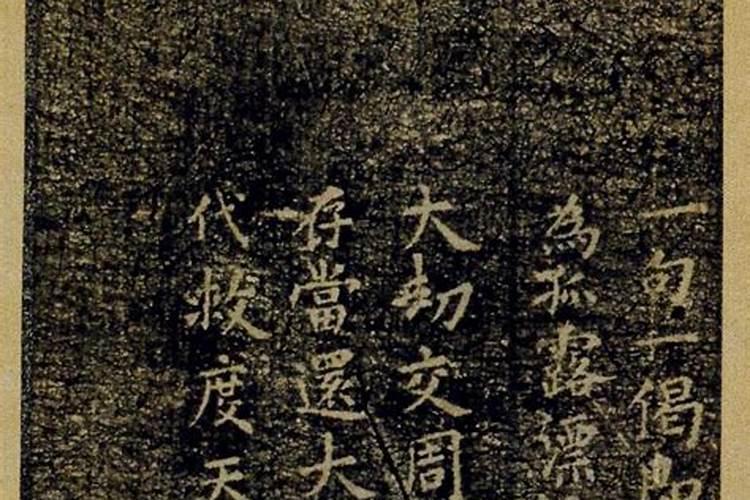 一句一偈
為孤露漂
大劫交周
存當還大
代救度天